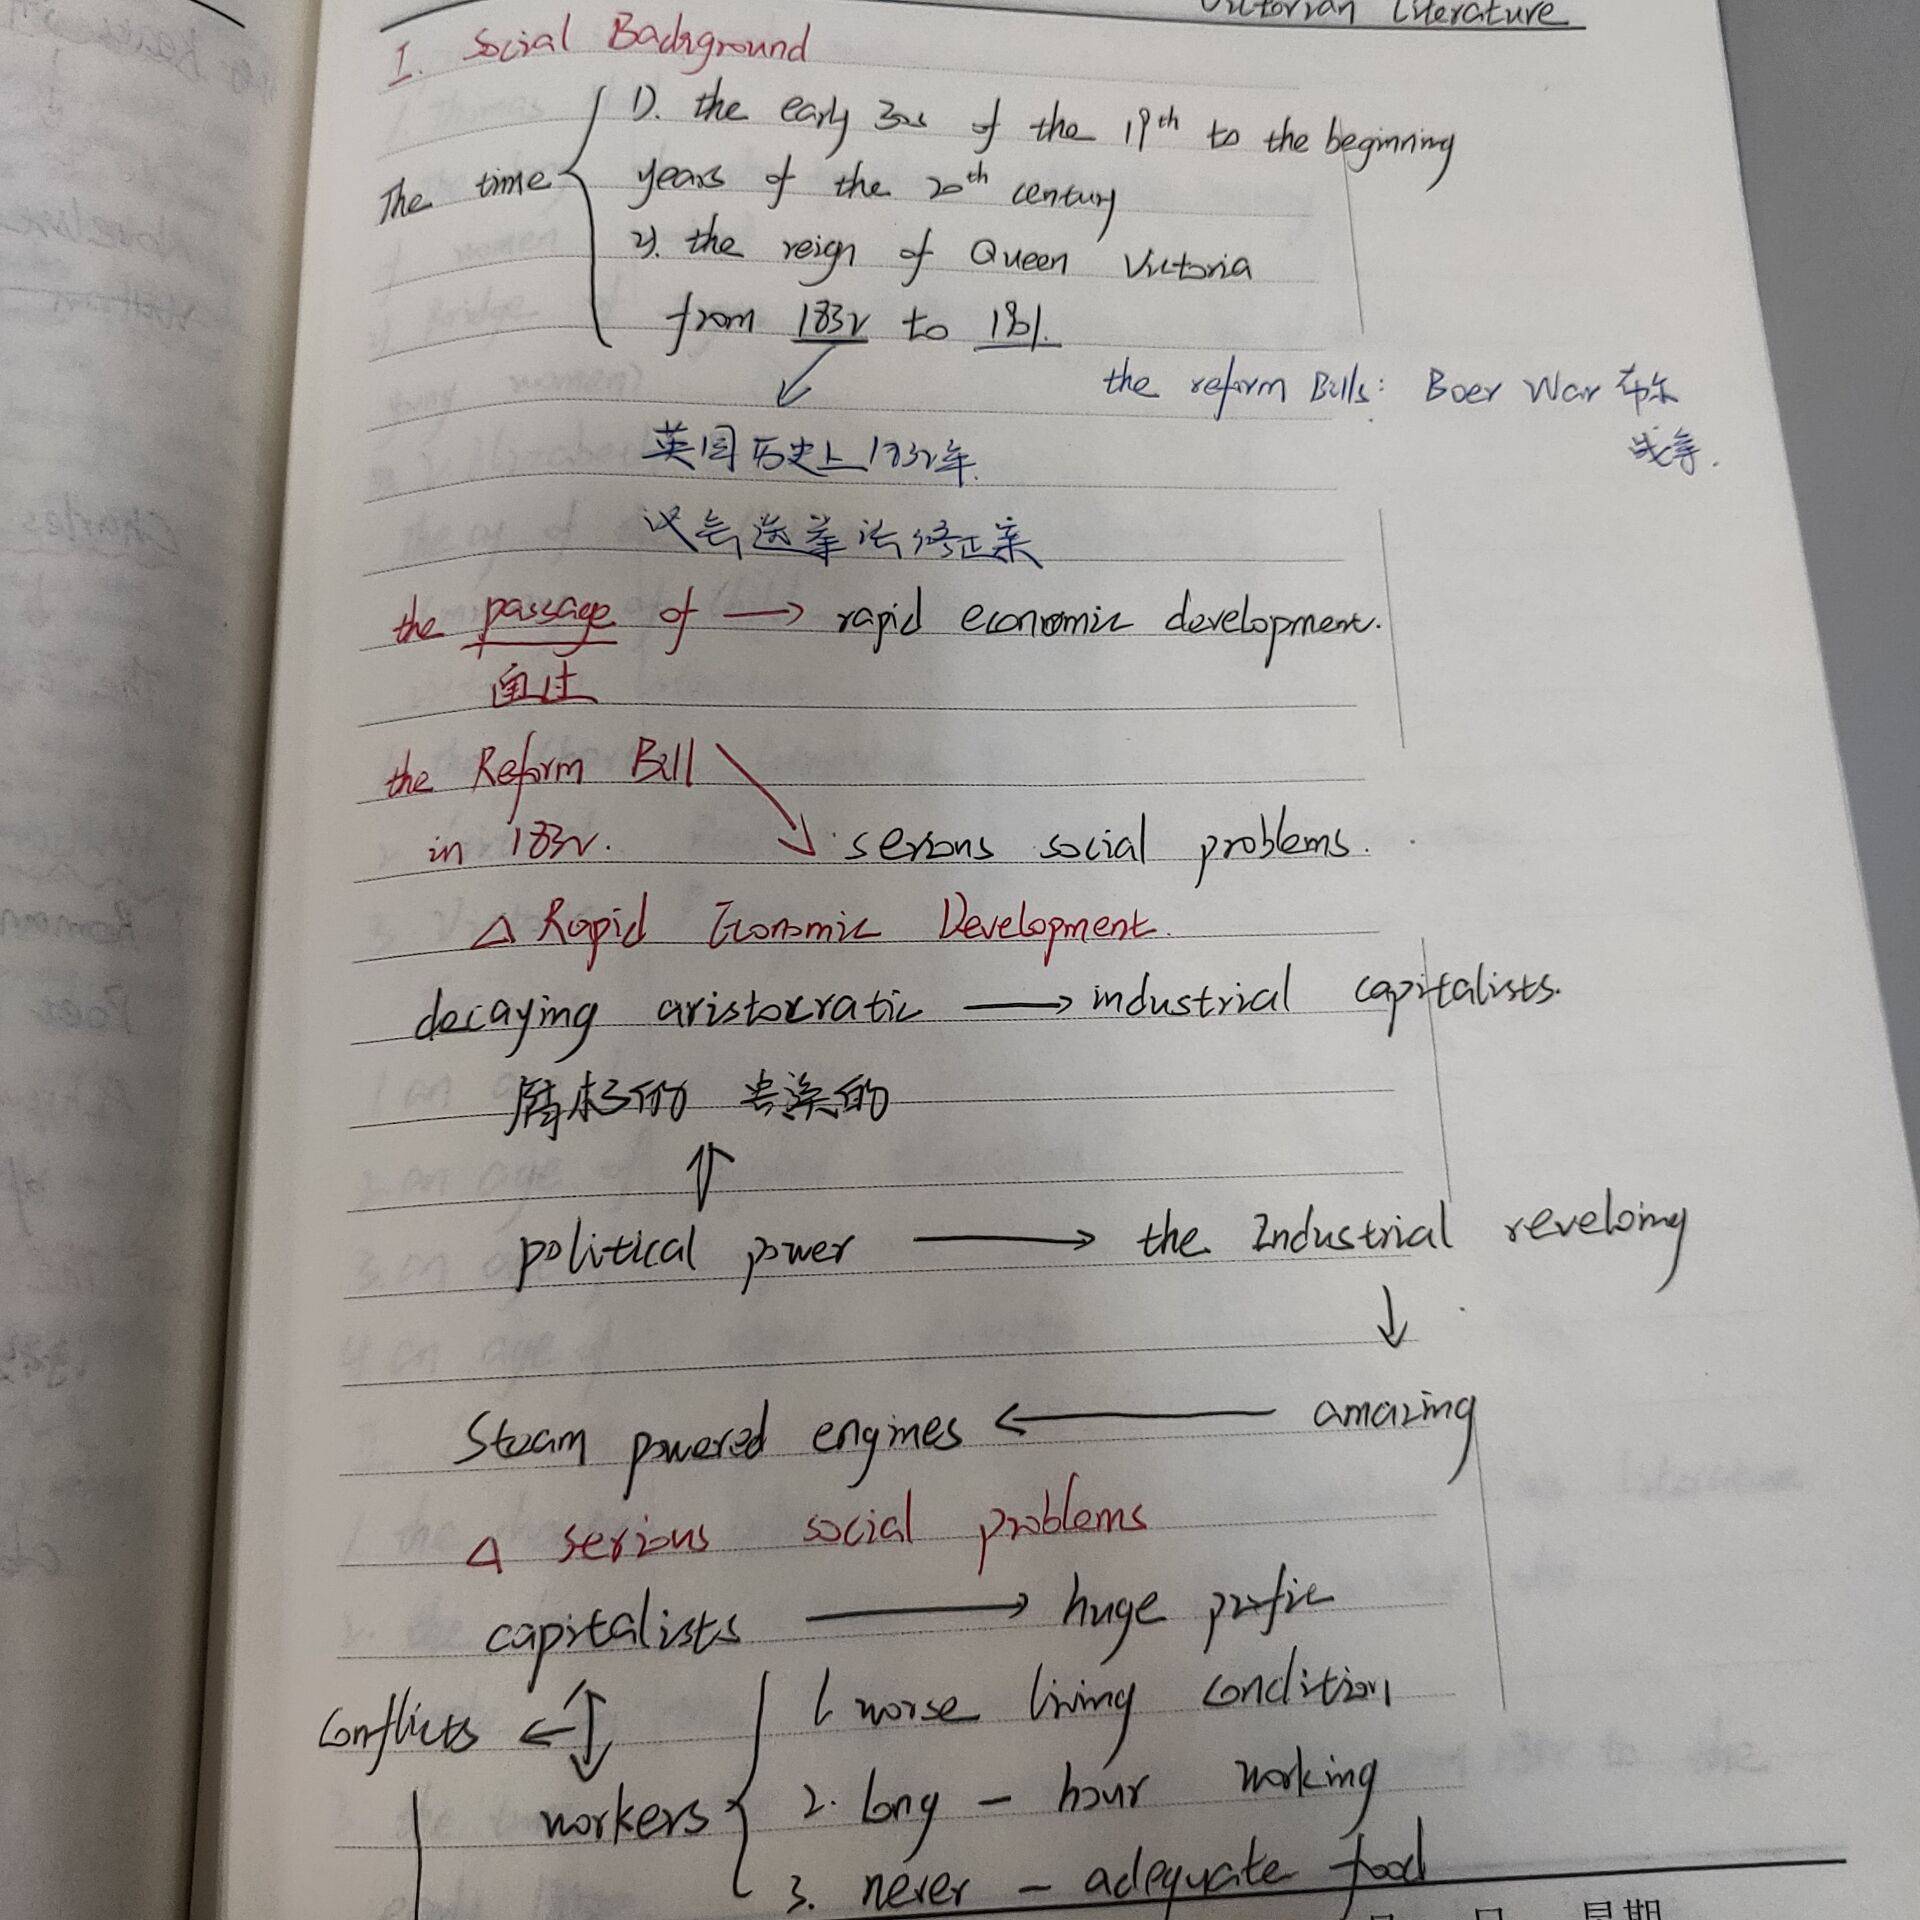 Victorian Literature
I. Social Background
The time
1). the early 30s of the 19th to the beginning
years of the 20th century
2). the reign of Queen Victoria
from 1832 to 1901.
the reform Bills: Boer War 布尔
战争.
英国历史上1832年.
议会选举法修正案
the passage of → rapid economic development.
通过
the Reform Bill
in 1832.
serious social problems.
△ Rapid Economic Development.
decaying aristocratic → industrial capitalists.
腐朽的 贵族的
political power → the Industrial
Steam powered engines ← amazing
△ serious social problems
capitalists → huge profit
Conflicts ←
workers
1. worse living condition
2. long - hour working
3. never - adequate food
月 日 星期